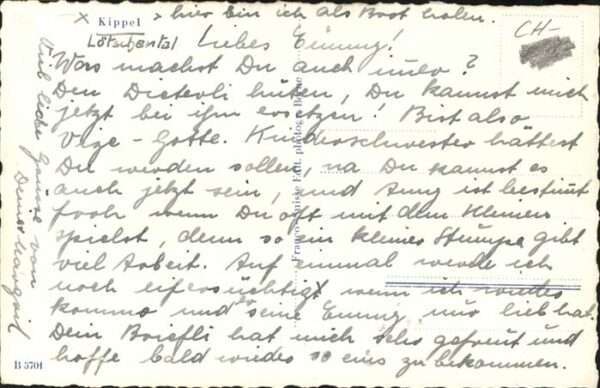 x hier bin ich als Brot holen.
Kippel
Lötschental
CH-
Liebes Emmy!
Was machst Du auch immer?
Den Dieterli hüten, Du kannst mich
jetzt bei ihm ersetzen! Bist also
Vize-Gotte. Kinderschwester hättest
Du werden sollen, na Du kannst es
auch jetzt sein, und Anny ist bestimmt
froh wenn Du oft mit dem Kleinen
spielst, denn so ein kleiner Stumpe gibt
viel Arbeit. Auf einmal werde ich
noch eifersüchtig wenn ich wieder
komme und er seine Emmy nur lieb hat.
Dein Briefli hat mich sehr gefreut und
hoffe bald wieder so eins zu bekommen.
Viele liebe Grüsse von
Deiner
Franco-Suisse Edit. photogr. Berne
B 5701